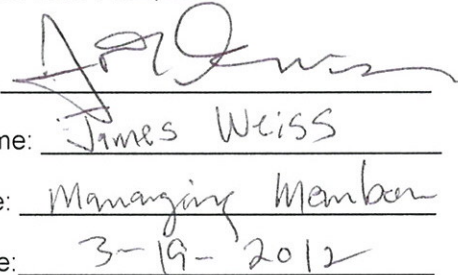 me: James Weiss
e: Managing Member
e: 3-19-2012